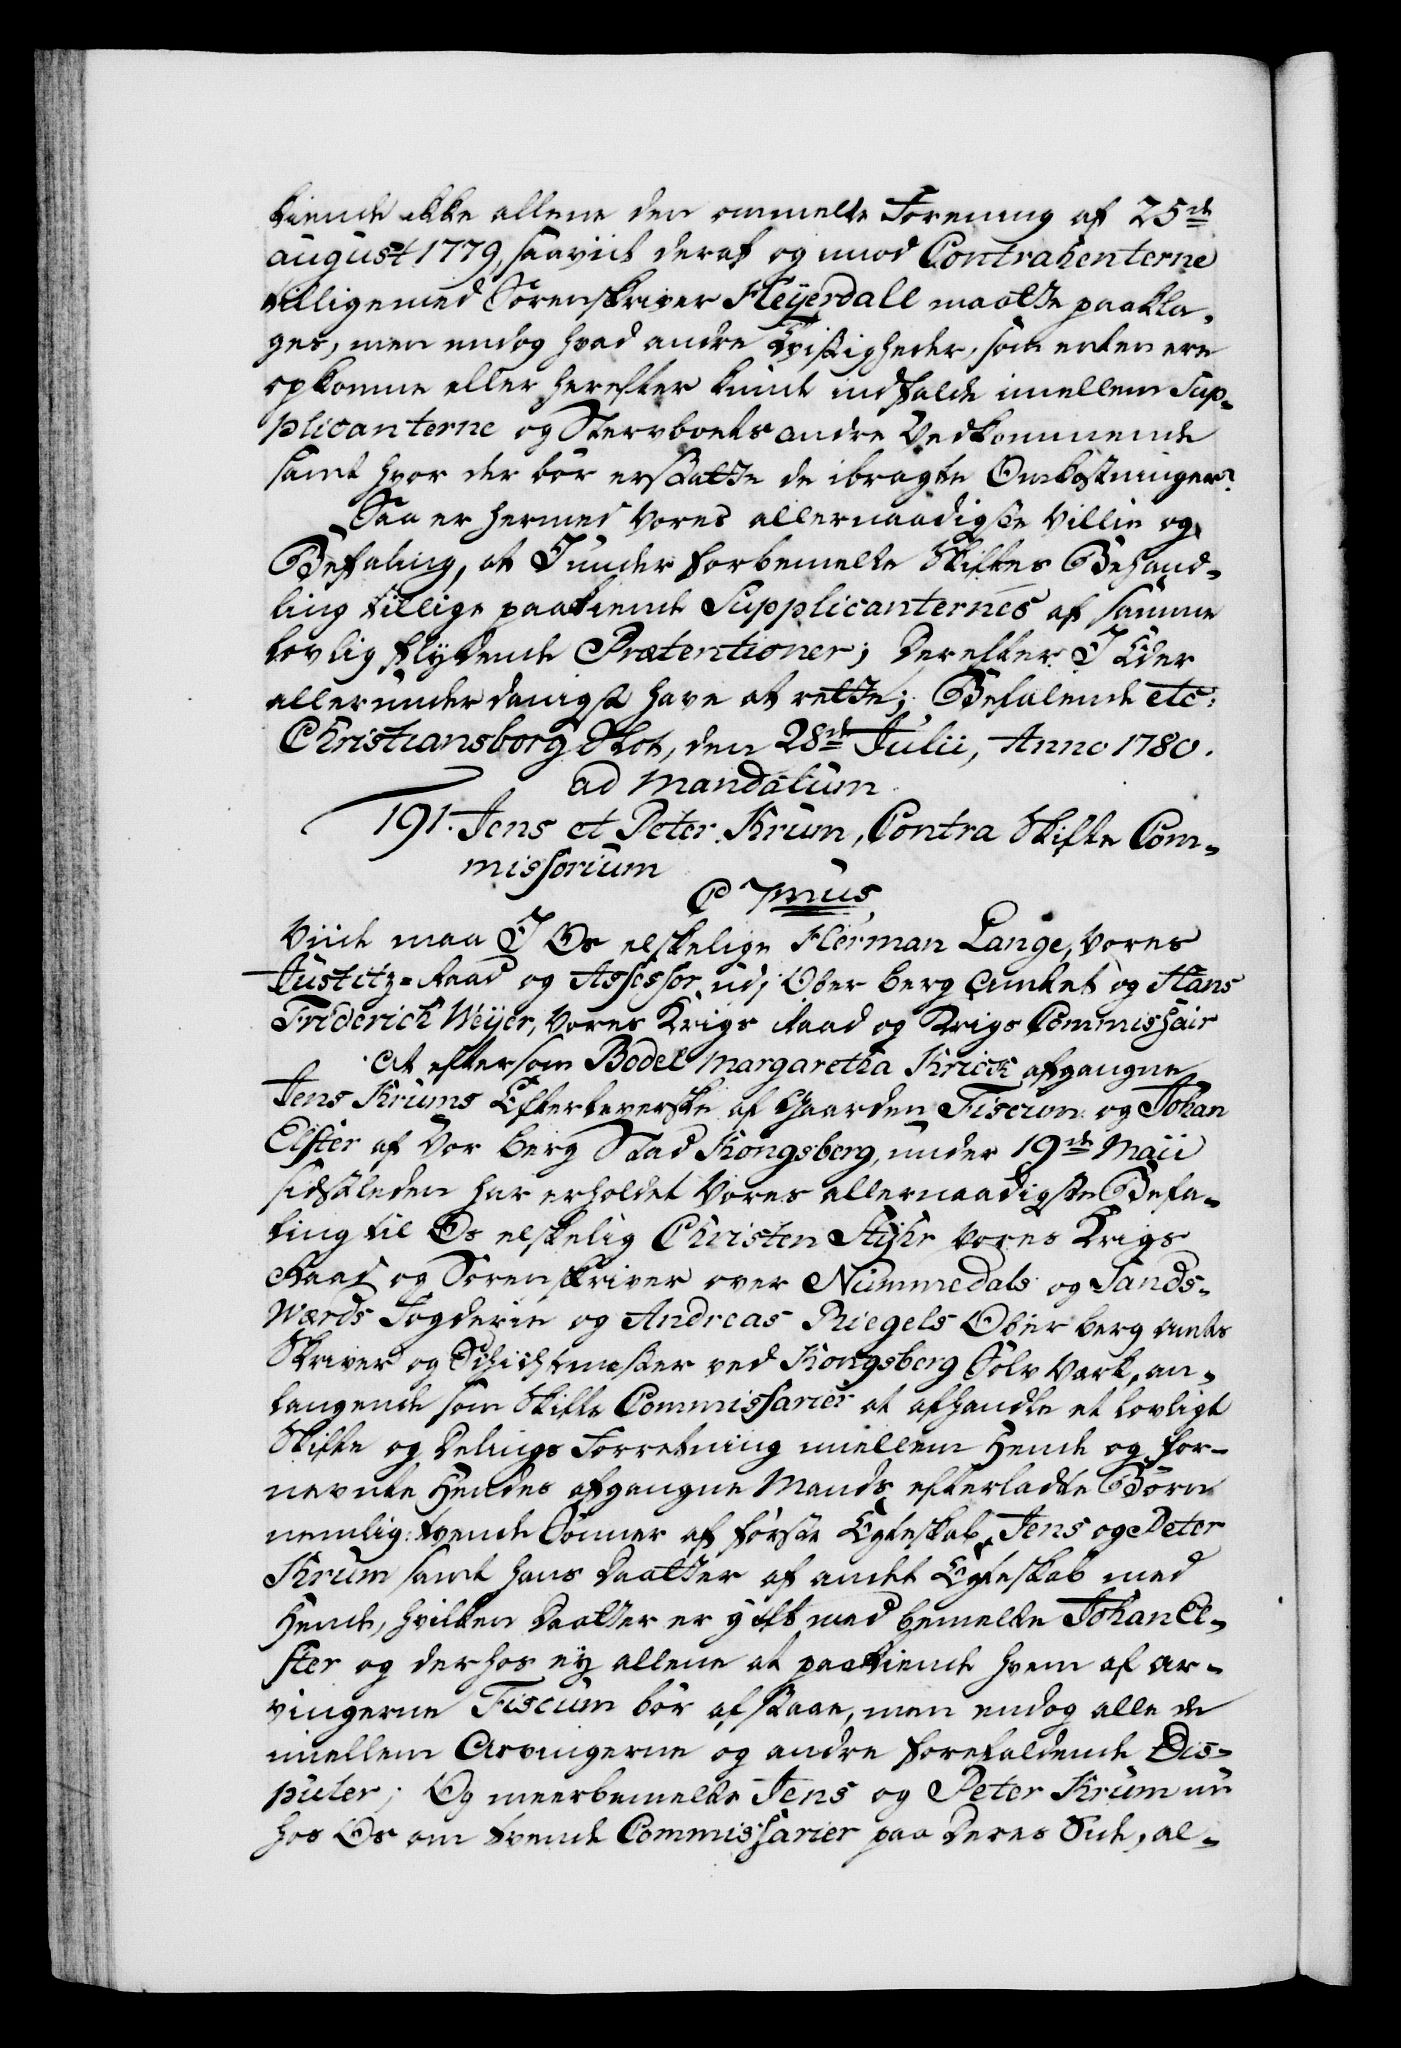 kiende ikke allene den ommelte Forening af 25de
august 1779, saavidt deraf og imod Contrahenterne
tilligemed Sorenskriver Heÿerdall maatte paakla-
ges, men endog hvad andre Tvistigheder, som enten ere
opkomne eller herefter kunde indfalde imellem Sup-
plicanterne og Stervboets andre Vedkommende
samt hvor der bör erstatte de ibragte Omkostninger?
Saa er hermed Vores allernaadigste Villie og
Befaling, at I under forbemelte Skiftes Behand-
ling tillige paakiende Supplicanternes af samme
lovlig flÿdende Prætentioner; Derefter I Eder
allerunderdanigst have at rette; Befalende etc:
Christiansborg Slot, den 28de Julii, Anno 1780.
ad mandatum
191. Jens et Peter Krum, Contra Skifte Com-
missorium
C 7mus
Viide maa I Os elskelige Herman Lange, Vores
Justitz-Raad og Assessor udj Ober Berg Amtet og Hans
Friderich Weÿer, Vores Krigs Raad og Krigs Commissair
At eftersom Bodel Margaretha Krick afgangne
Jens Krums Efterleverske af Gaarden Fiscum og Johan
Elster af Vor Berg Stad Kongsberg, under 19de Maii
sidstleden har erholdet Vores allernaadigste Befa-
ling til Os elskelig Christen Stÿhr Vores Krigs
Raad og Sorenskriver over Nummedals og Sands-
Værds Fogderie og Andreas Riegels Ober berg amts
Skriver og Schichtmester ved Kongsberg Sölv Værk, an-
langende som Skifte Commissarier at afhandle et lovligt
Skifte og Delings Forretning imellem Hende og for-
nevnte Hendes afgangne Mands efterladte Börn
nemlig: tvende Sönner af förste Egteskab, Jens og Peter
Krum samt hans Daatter af andet Egteskab med
Hende, hvilken Daatter er gift med bemelte Johan El-
ster og derhos eÿ allene at paakiende hvem af ar-
vingerne Fiscum bör afstaae, men endog alle de
imellem Arvingerne og andre forefaldende Dis-
puter; Og meerbemelte Jens og Peter Krum nu
hos Os om tvende Commissarier paa Deres Side, al-